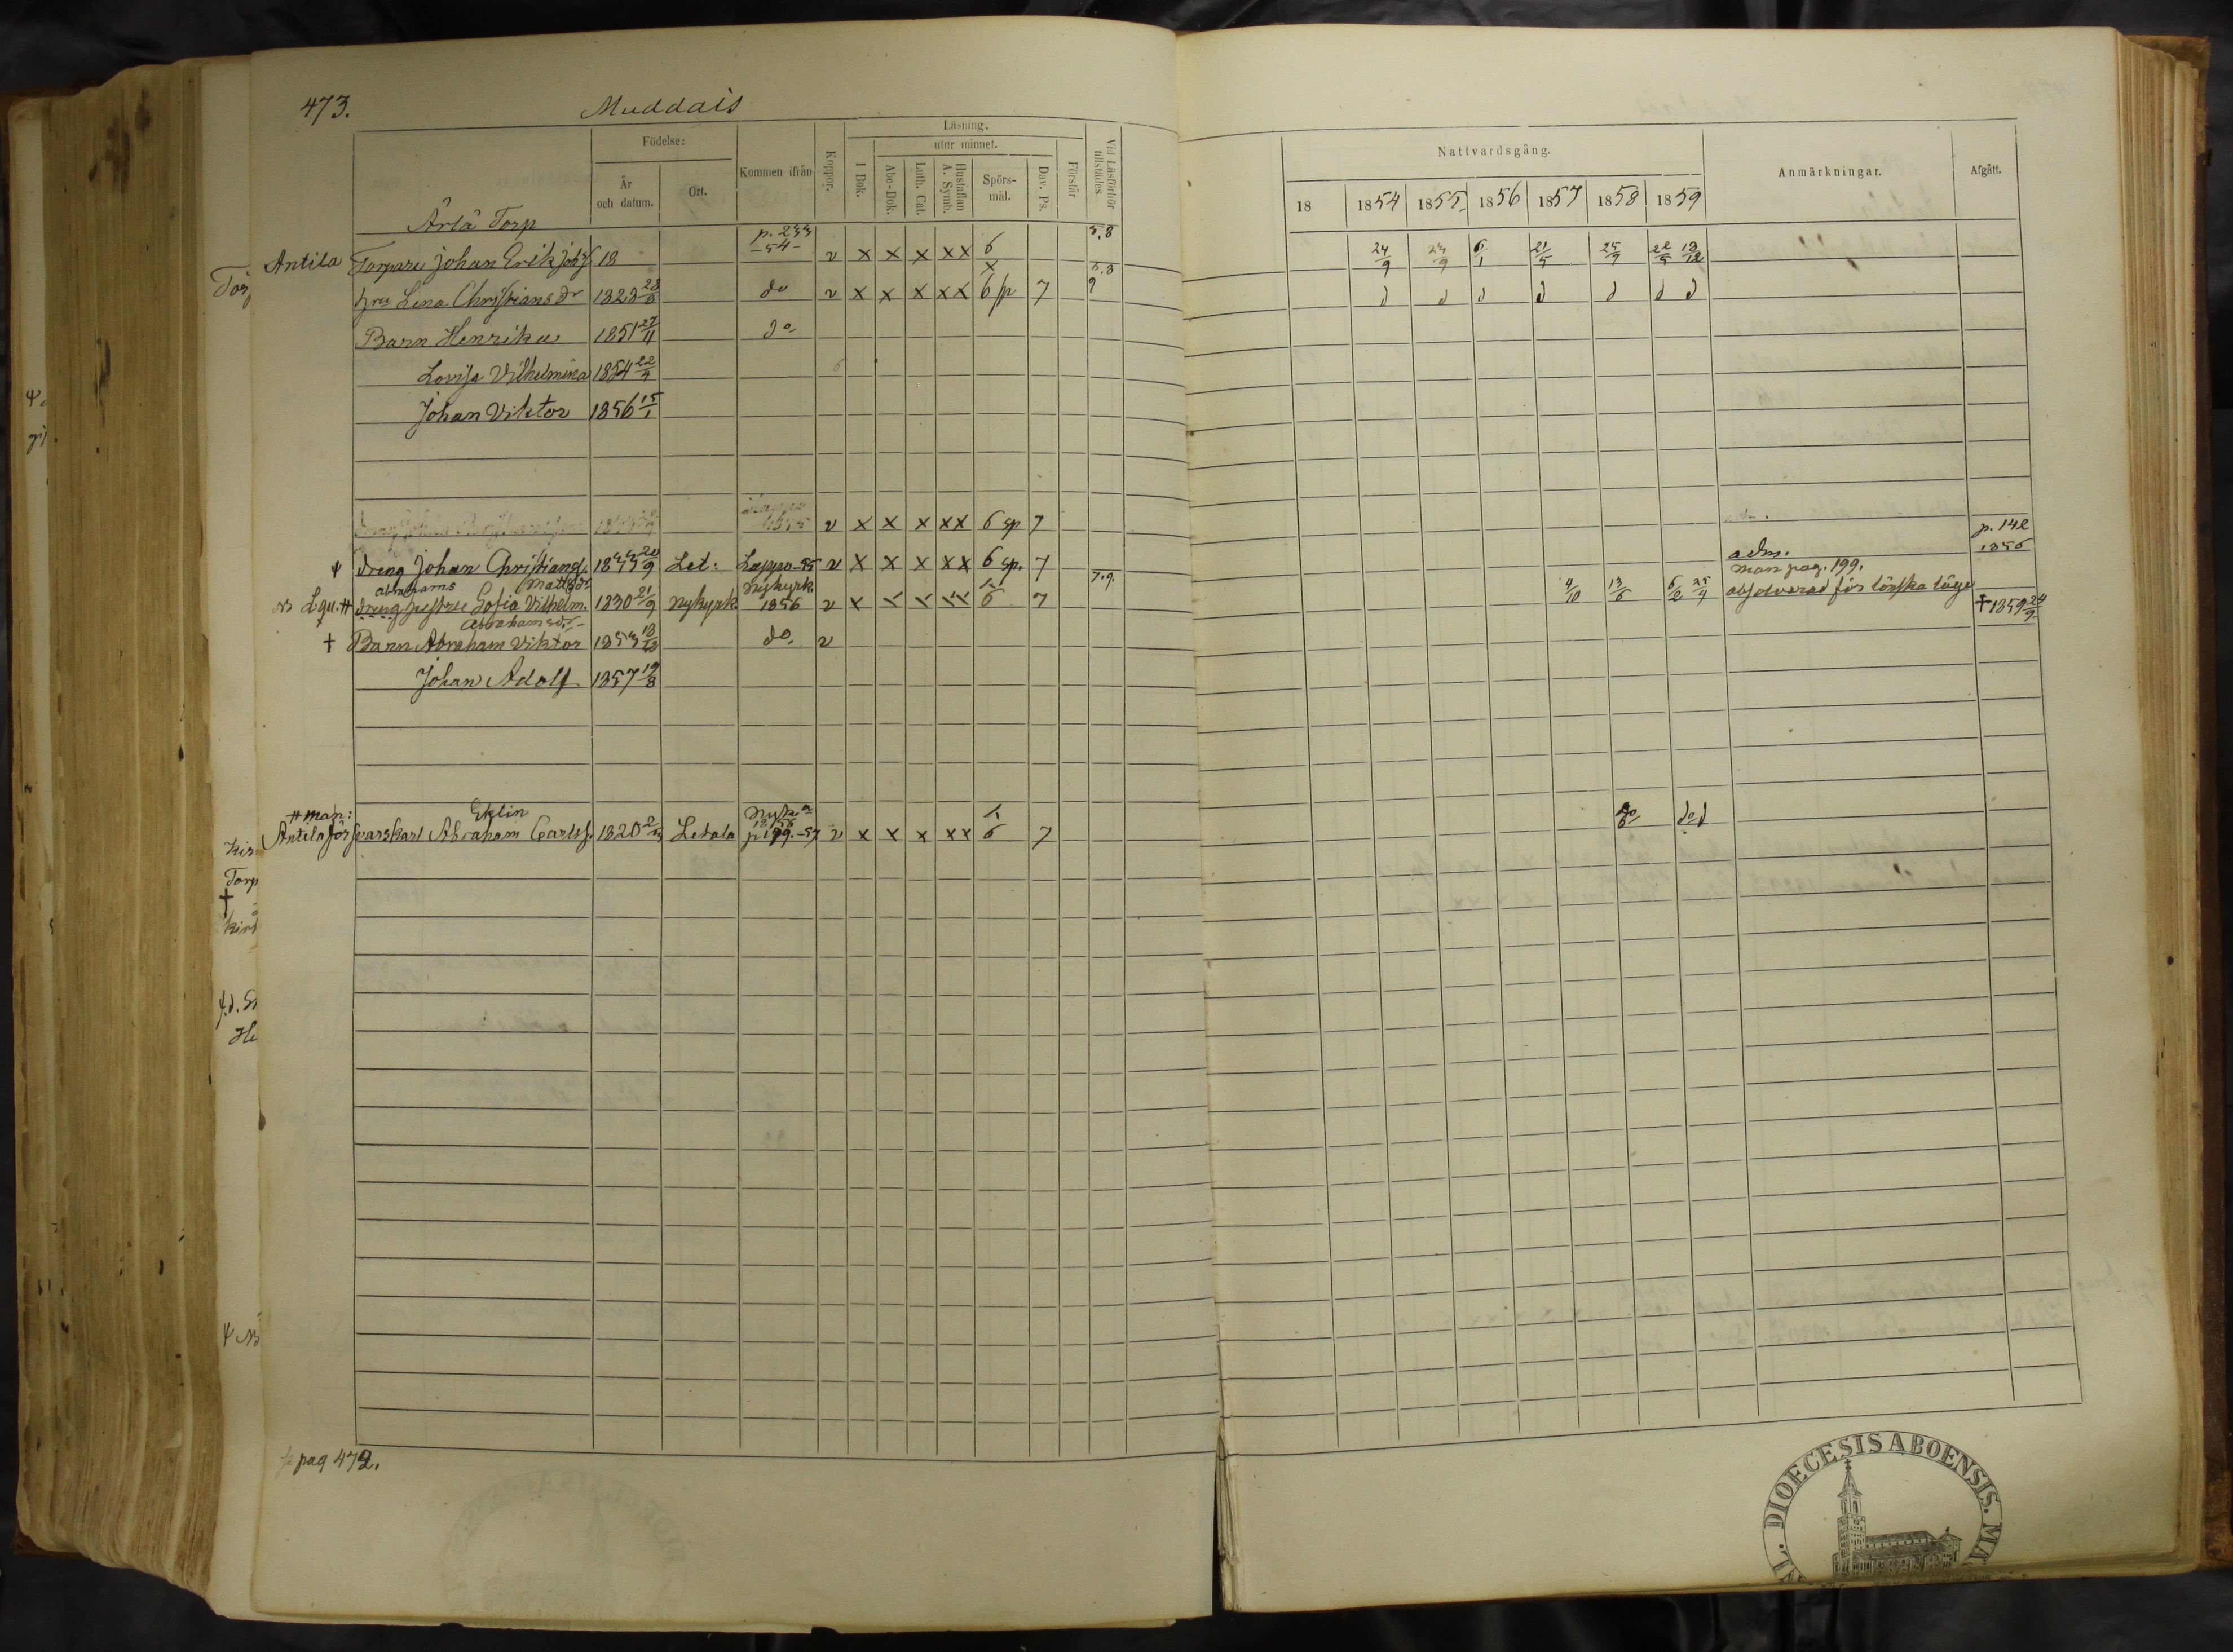 473.
Muddais
Födelse:
År
och datum.
Ort.
Kommen ifrån
Koppor.
Läsning.
utur minnet.
I Bok.
Abc-Bok.
Luth. Cat.
Hustaflan
A. Symb.
Spörs-
mål.
Dav. Ps.
Förstår
Vid Läsförhör
tillstädes
Nattvardsgång.
18 1854 1855 1856 1857 1858 1859
Anmärkningar.
Afgått.
Ärlä Torp
Antila Torpare Johan Erik 18 p. 233 -54- v x x x xx 6 5.8 24/9 23/9 6/1 21/5 25/7 22/5 19/12
Hru Lena Christiansdr 1823 28/8 do v x x x xx 6 sp 7 d d d d d d d
Barn Henrika 1851 27/11 do
Lovisa Vilhelmina 1854 22/7
Johan Viktor 1856 15/1
v x x x xx 6 sp 7
Dreng Johan Christians. 1833 20/9 Let: Lappo -55 v x x x xx 6 sp. 7 adm. p. 142 1856
man pag. 199.
abrahams Matsdr
Lqu. # dreng hustru Sofia Vilhelm. 1830 21/9 Nykyrk. Nykyrk. 1856 v x 6 7 7.9. 4/10 13/6 6/2 25/9 absolverad för lönska läge
Abrahamsdr
† Barn Abraham Viktor 1853 18/12 do. v † 1859 24/9
Johan Adolf 1857 19/8
# man: Eklin
Antila Försvarskarl Abraham Carlss. 1820 Letala p. 199. -57 v x x x xx 6 7 do d d
se pag 472.
DIOECESIS ABOENSIS.